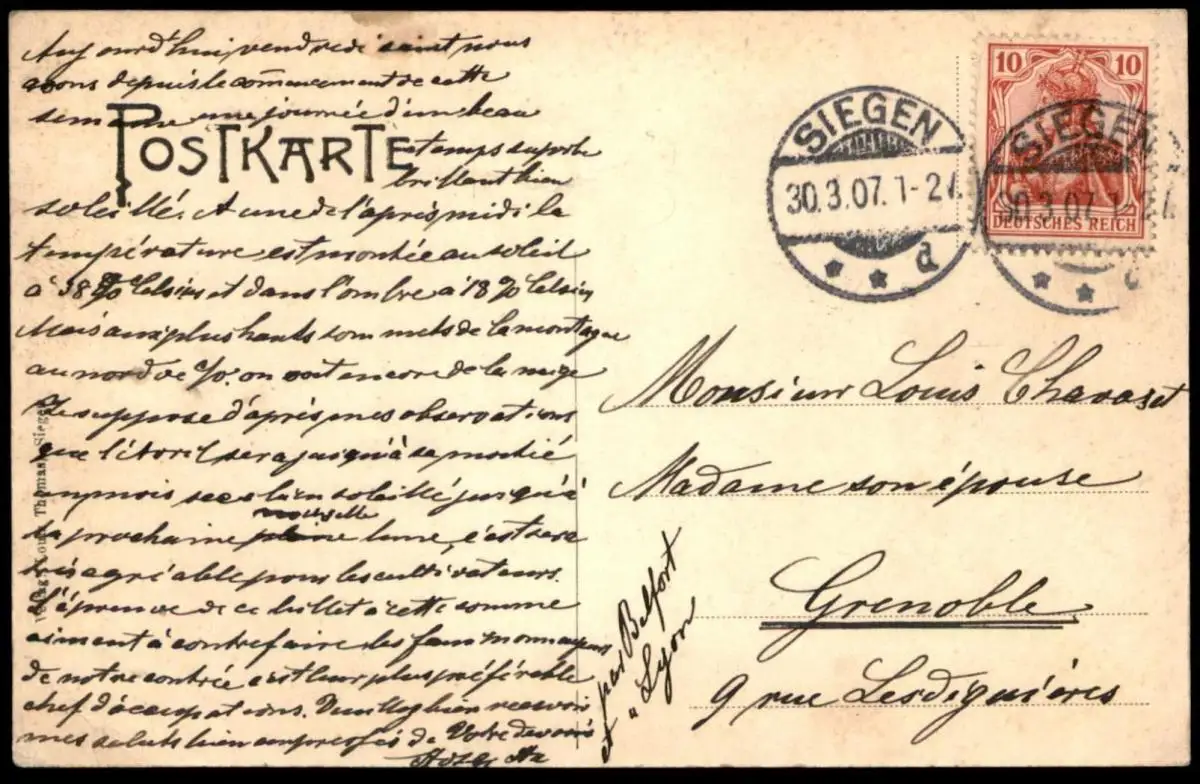 Aujourd'hui, vendredi saint nous
avons depuis le commencement de cette
semaine une journée d'un beau
POSTKARTE
temps superbe
brillant bien
soleillé. A une de l'après midi la
température est montée au soleil
à 38 % Celsius et dans l'ombre à 18 % Celsius
Mais aux plus hauts sommets de la montagne
au nord de on voit encore de la neige
Je suppose d'après mes observations
que l'avril sera jusqu'à sa moitié
un mois sec bien soleillé jusqu'à
nouvelle
sa prochaine pleine lune, c'est sera
très agréable pour les cultivateurs.
L'épreuve de ce billet à cette comme
aiment à contrefaire les faux monnayeurs
de notre contrée c'est leur plus préférable
chef d'occupations. Veuillez bien recevoir
mes saluts bien empressés de Votre dévoué
Verlag: Louis Thomas, Siegen
SIEGEN
30.3.07. 1-2
d
10 10
DEUTSCHES REICH
SIEGEN
30.3.07. 1-2
Monsieur Louis Chavaset
Madame son épouse
Grenoble
9 rue Lesdiguières
et par Belfort
" Lyon